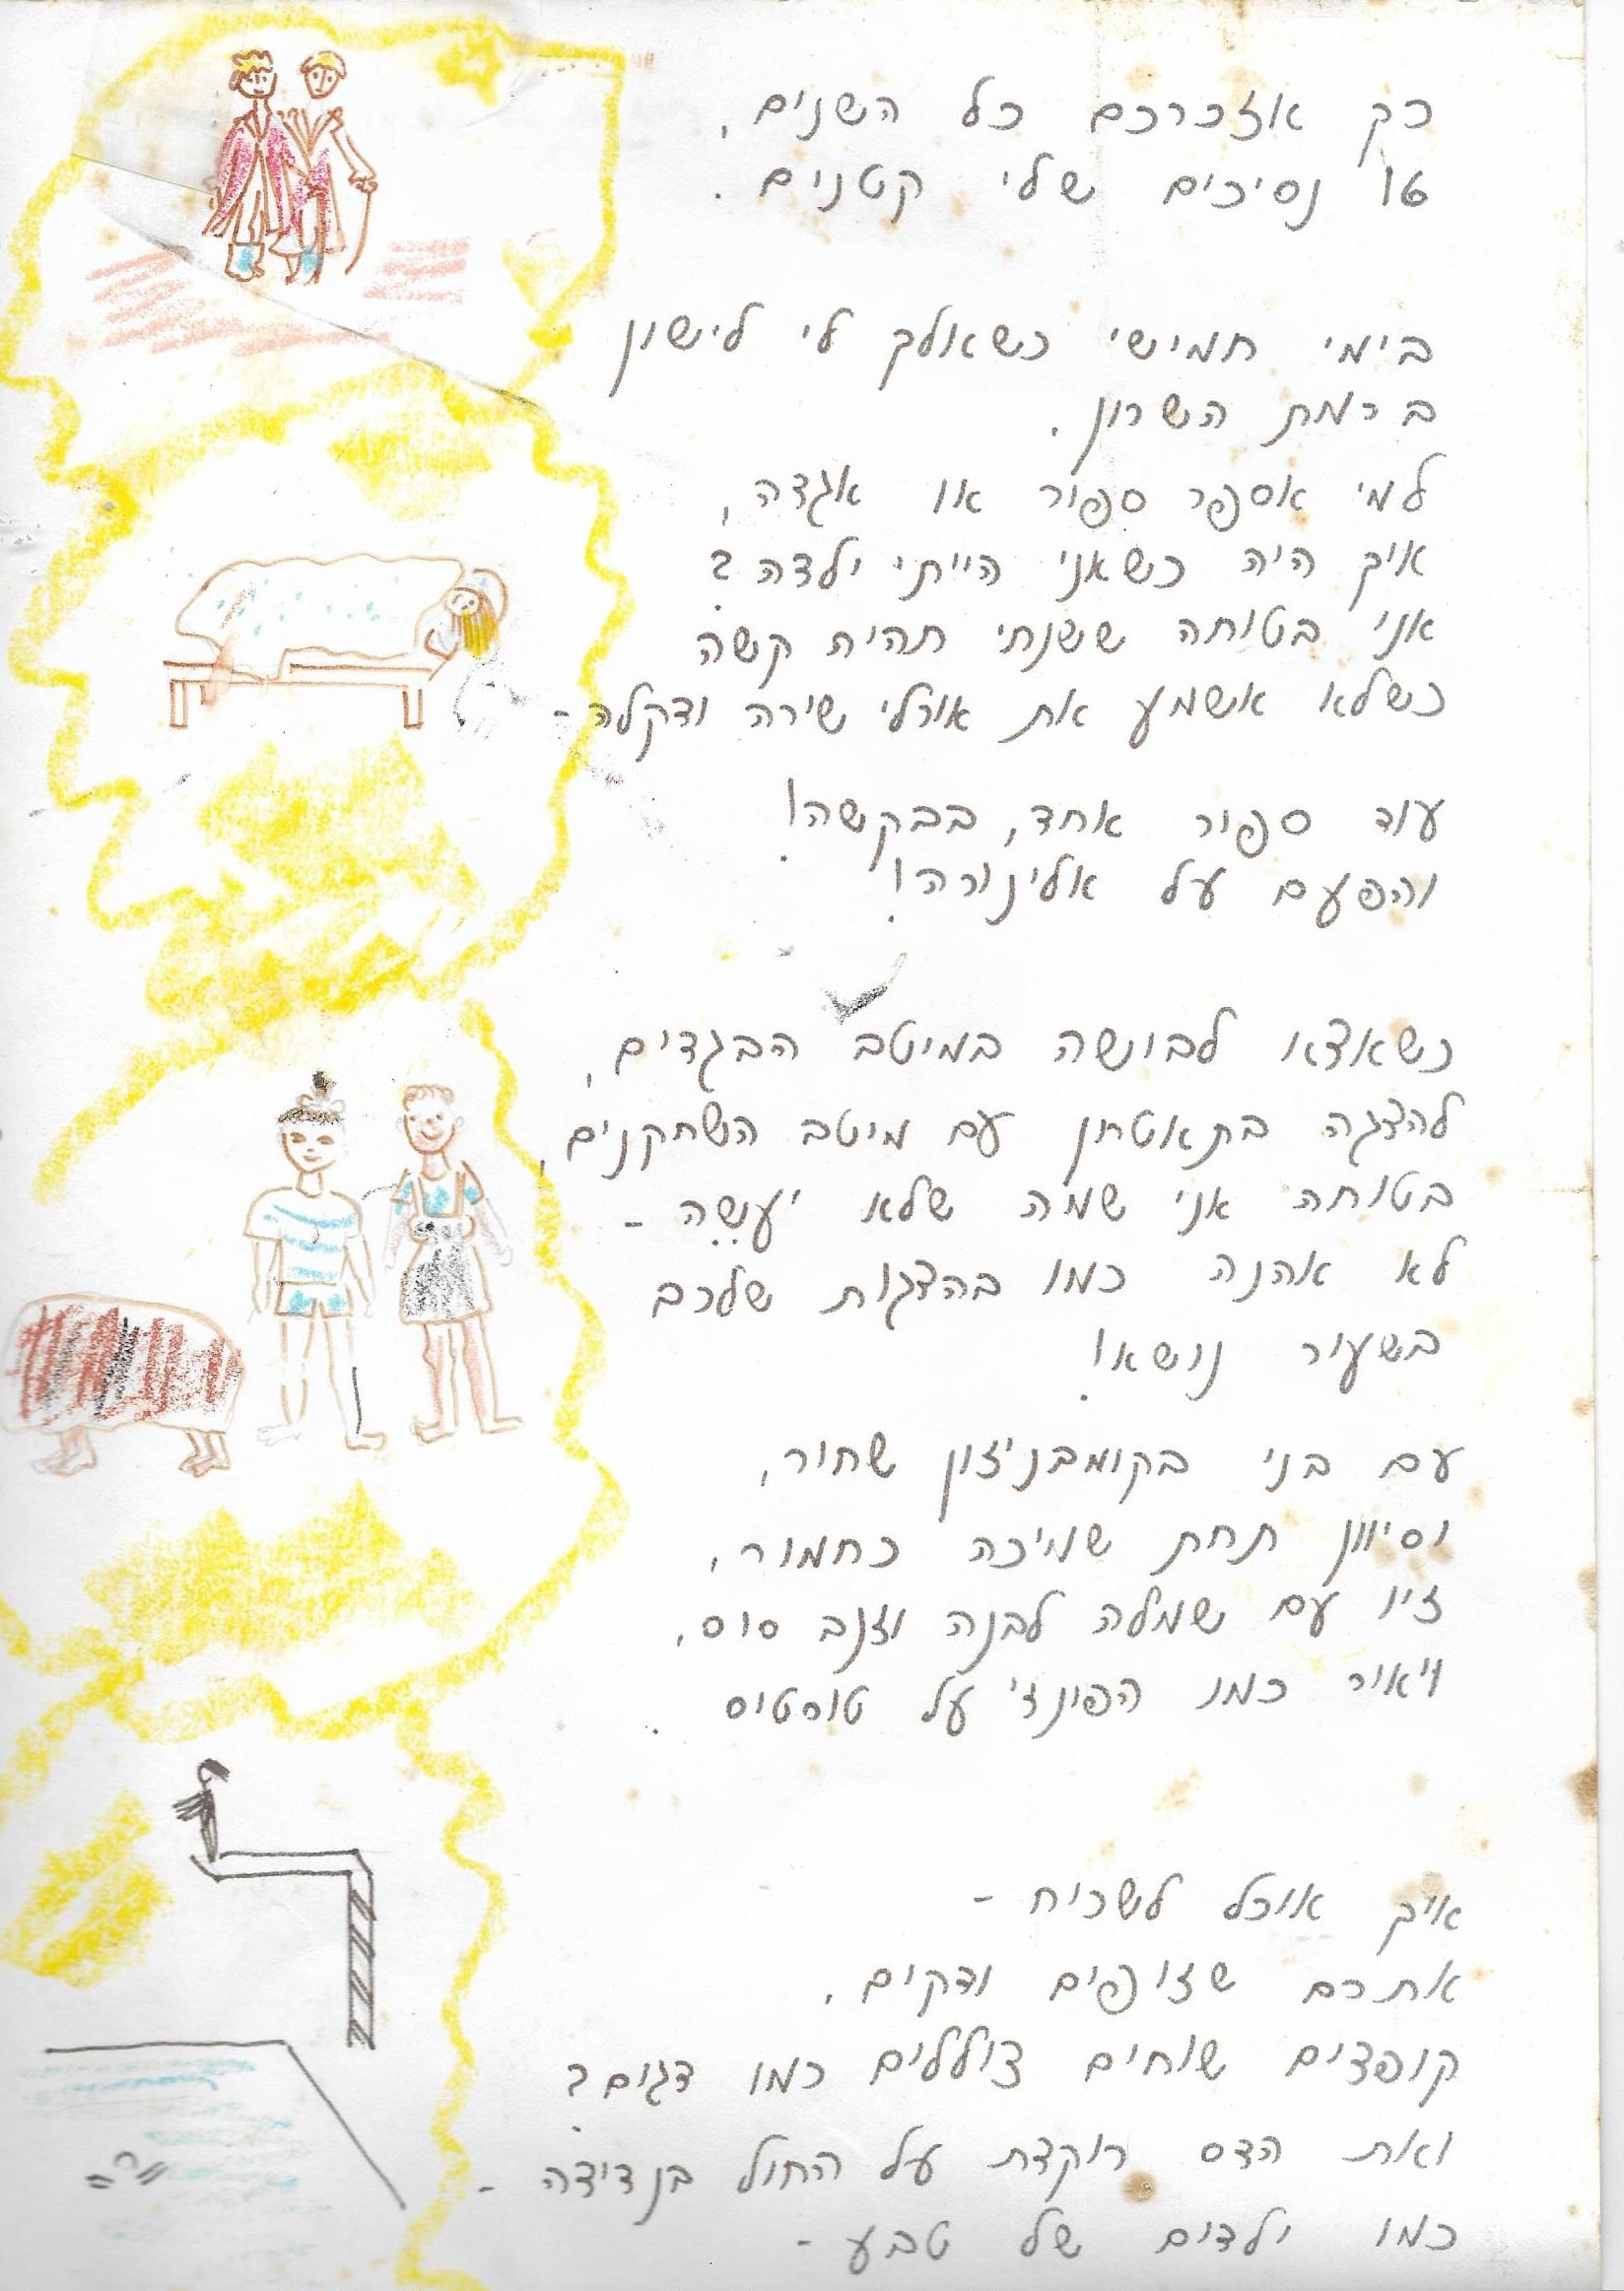 כך אזכרכם כל השנים,
16 נסיכים שלי קטנים.
בימי חמישי כשאלך לי לישון
ברמת השרון.
למי אספר ספור או אגדה,
איך היה כשאני הייתי ילדה?
אני בטוחה ששנתי תהיה קשה
כשלא אשמע את אורלי שירה ודקלה -
עוד ספור אחד, בבקשה!
והפעם על אלינורה!
כשאצא לבושה במיטב הבגדים,
להצגה בתאטרון עם מיטב השחקנים,
בטוחה אני שמה שלא יעשה -
לא אהנה כמו בהצגות שלכם
בשעור נושא!
עם בני בקומבניזון שחור,
וסיוון תחת שמיכה כחמור,
זיו עם שמלה לבנה וזנב סוס,
ויאיר כמו הפינג'י על טורטוס.
איך אוכל לשכוח -
אתכם שזופים ודקים,
קופצים שוחים צוללים כמו דגים?
ואת הדס רוקדת על החול בנדידה -
כמו ילדים של טבע -